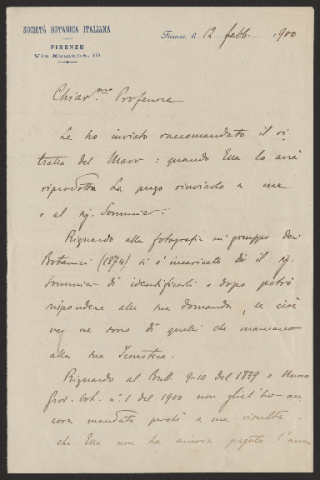 SOCIETÀ BOTANICA ITALIANA
FIRENZE
Via Romana, 19
Firenze, li 12 febb. 1900
Chiar.mo Professore
Le ho inviato raccomandato il ri-
tratto del : quando Ella lo avrà
riprodotto La prego rinviarlo a me
o al Sig. Sommier.
Riguardo alla fotografia in gruppo dei
Botanici (1874) si è incaricato di il Sig.
Sommier di identificarli e dopo potrò
rispondere alla sua domanda, se cioè
ve ne sono di quelli che mancano
alla sua Iconoteca.
Riguardo al Bull. 9-10 del 1899 e Nuovo
Gior. bot. n. 1 del 1900 non gliel'ho an-
cora mandato perché a me risulta
che Ella non ha ancora pagato l'anno